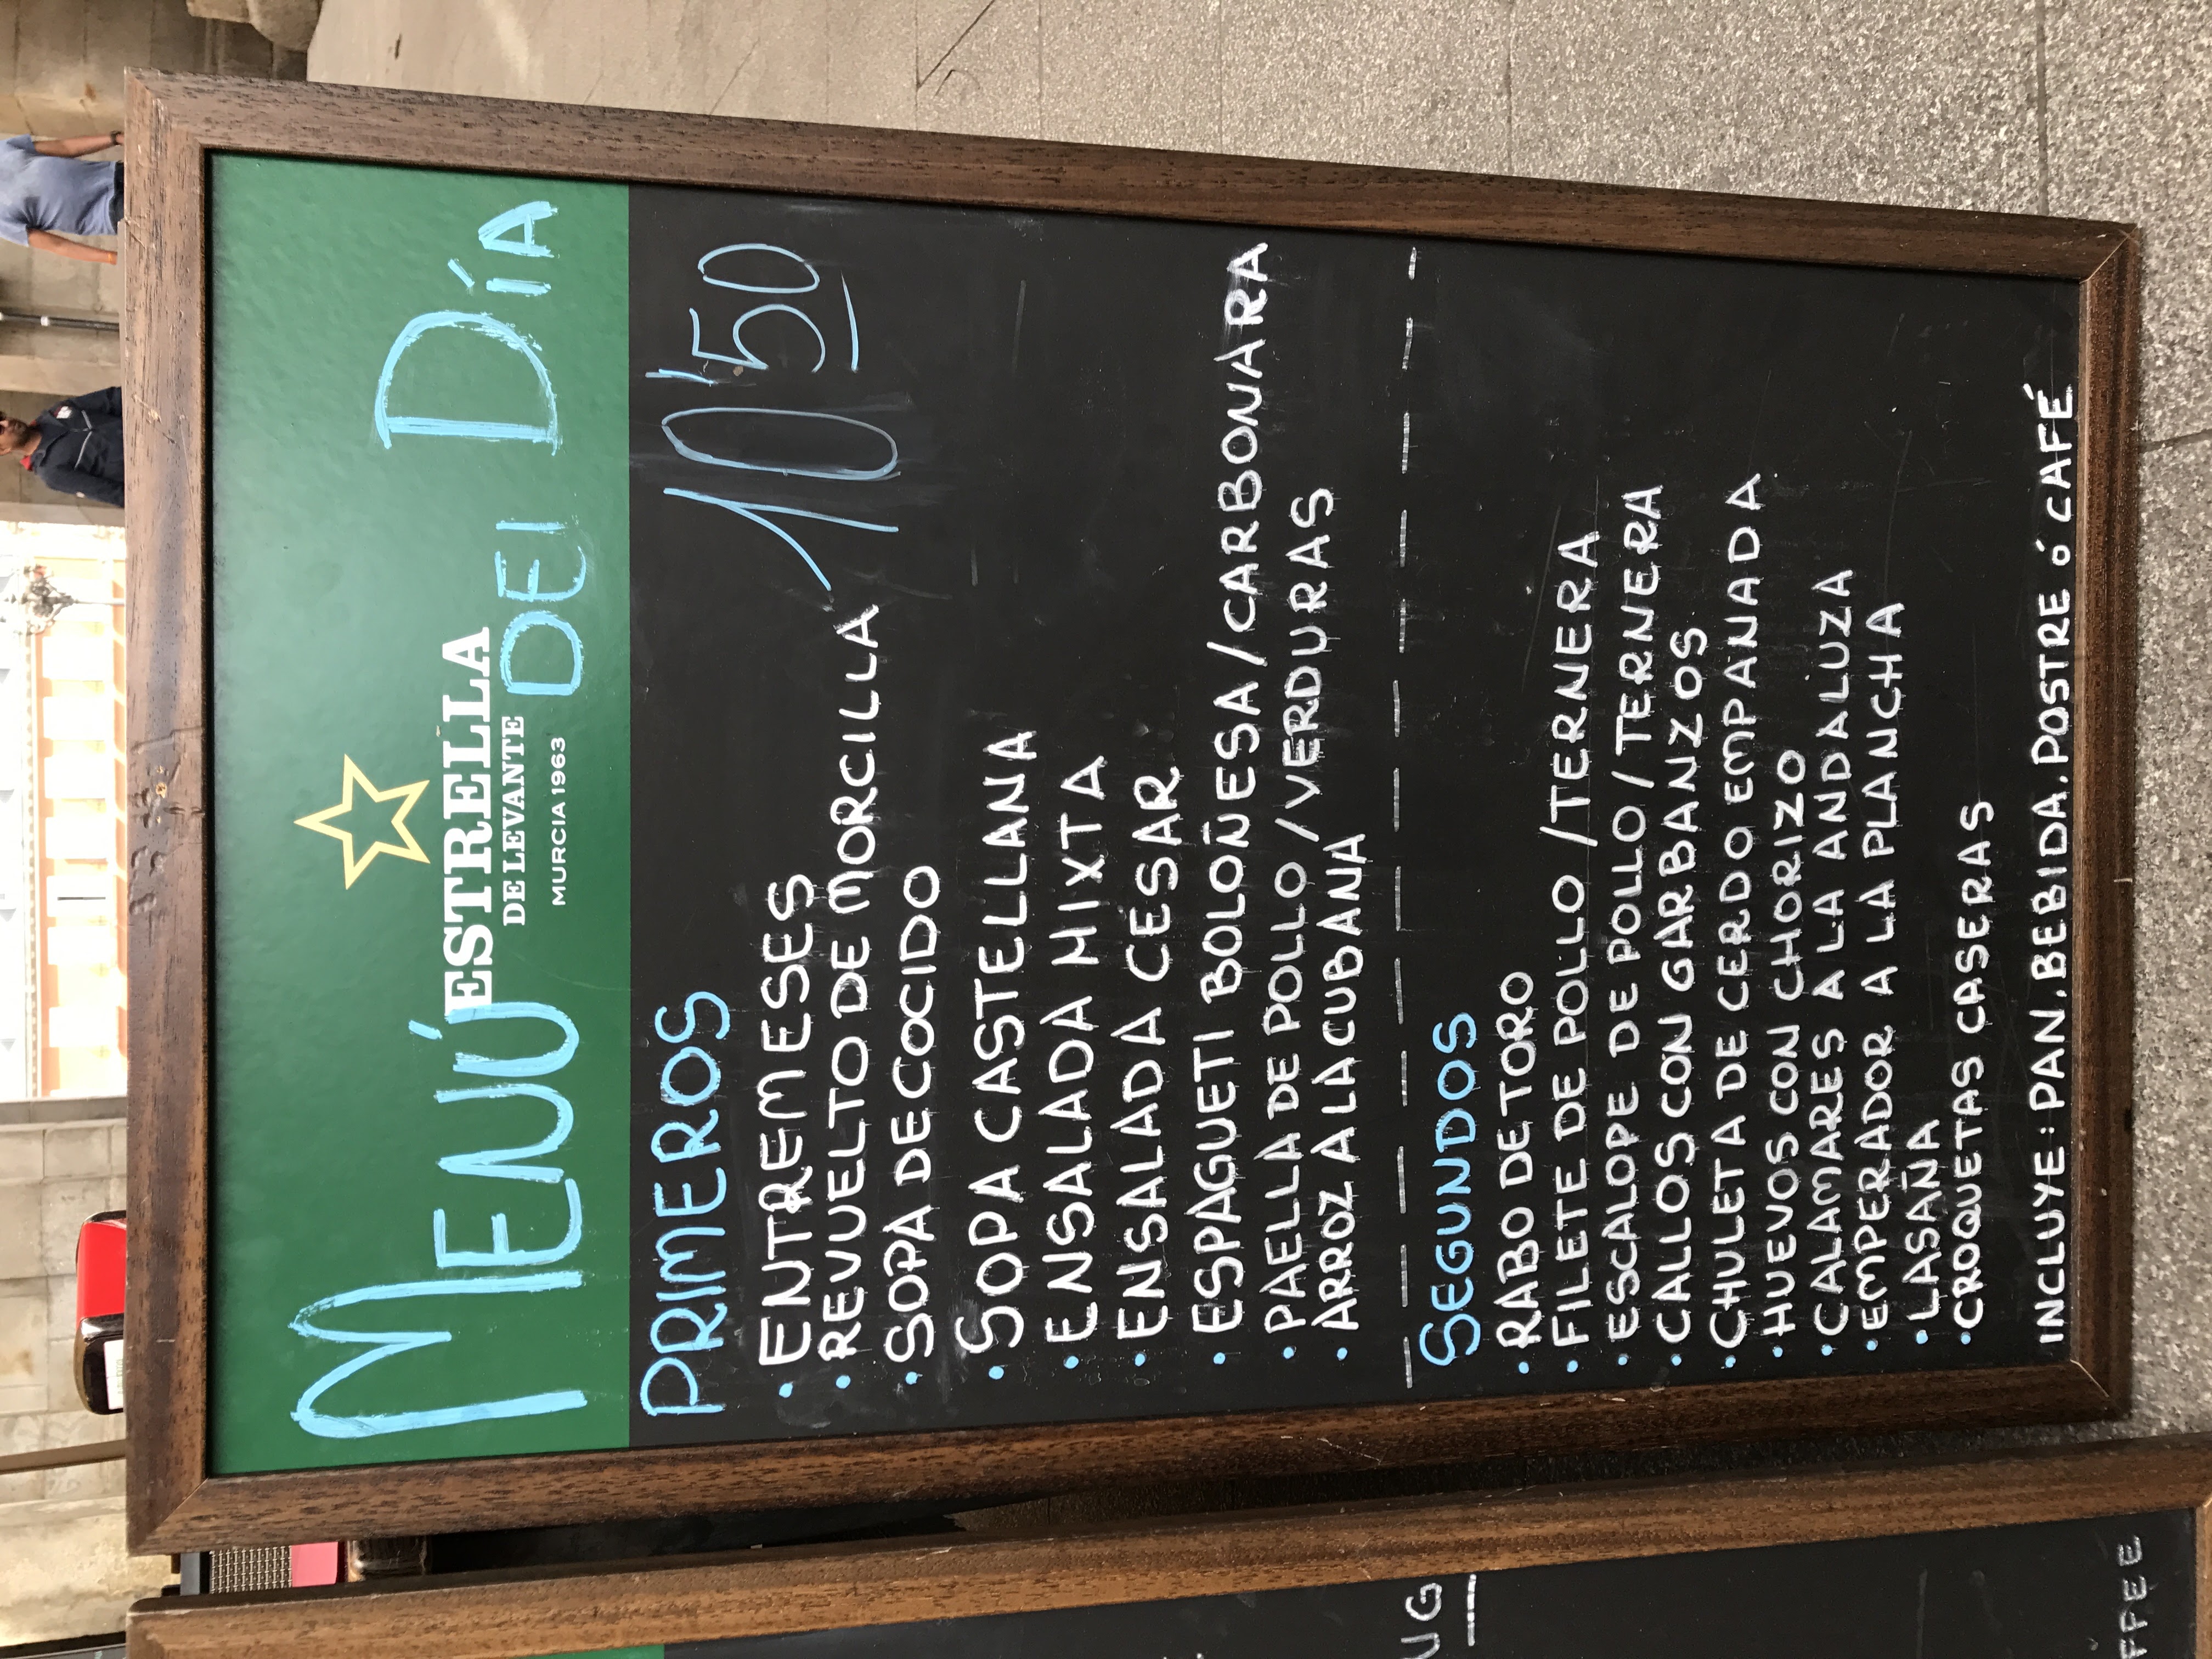 ESTRELLA
DE LEVANTE
MURCIA 1963
MENÚ DEL DÍA
PRIMEROS
10'50
• ENTREMESES
• REVUELTO DE MORCILLA
• SOPA DE COCIDO
• SOPA CASTELLANA
• ENSALADA MIXTA
• ENSALADA CESAR
• ESPAGUETI BOLOÑESA/CARBONARA
• PAELLA DE POLLO/VERDURAS
• ARROZ A LA CUBANA
SEGUNDOS
• RABO DE TORO
• FILETE DE POLLO/TERNERA
• ESCALOPE DE POLLO/TERNERA
• CALLOS CON GARBANZOS
• CHULETA DE CERDO EMPANADA
• HUEVOS CON CHORIZO
• CALAMARES A LA ANDALUZA
• EMPERADOR A LA PLANCHA
• LASAÑA
• CROQUETAS CASERAS
INCLUYE: PAN, BEBIDA, POSTRE Ó CAFÉ